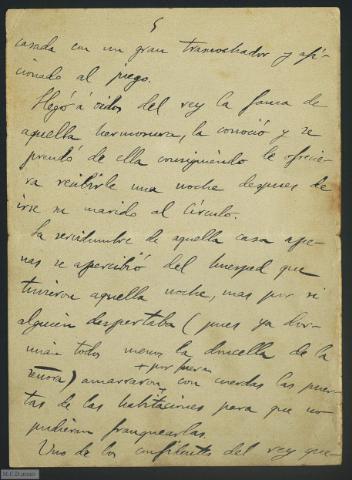 5
casada con un gran trasnochador y afi-
cionado al juego.
Llegó á oidos del rey la fama de
aquella hermosura, la conoció y se
prendó de ella consiguiendo le ofrecie-
ra recibirle una noche despues de
irse su marido al Círculo.
La servidumbre de aquella casa ape-
nas se apercibió del huesped que
tuvieron aquella noche, mas por si
alguien despertaba (pues ya dor-
mian todos menos la doncella de la
+ por fuera
señora) amarraron + con cuerdas las puer-
tas de las habitaciones para que no
pudieran franquearlas.
Uno de los confidentes del rey que